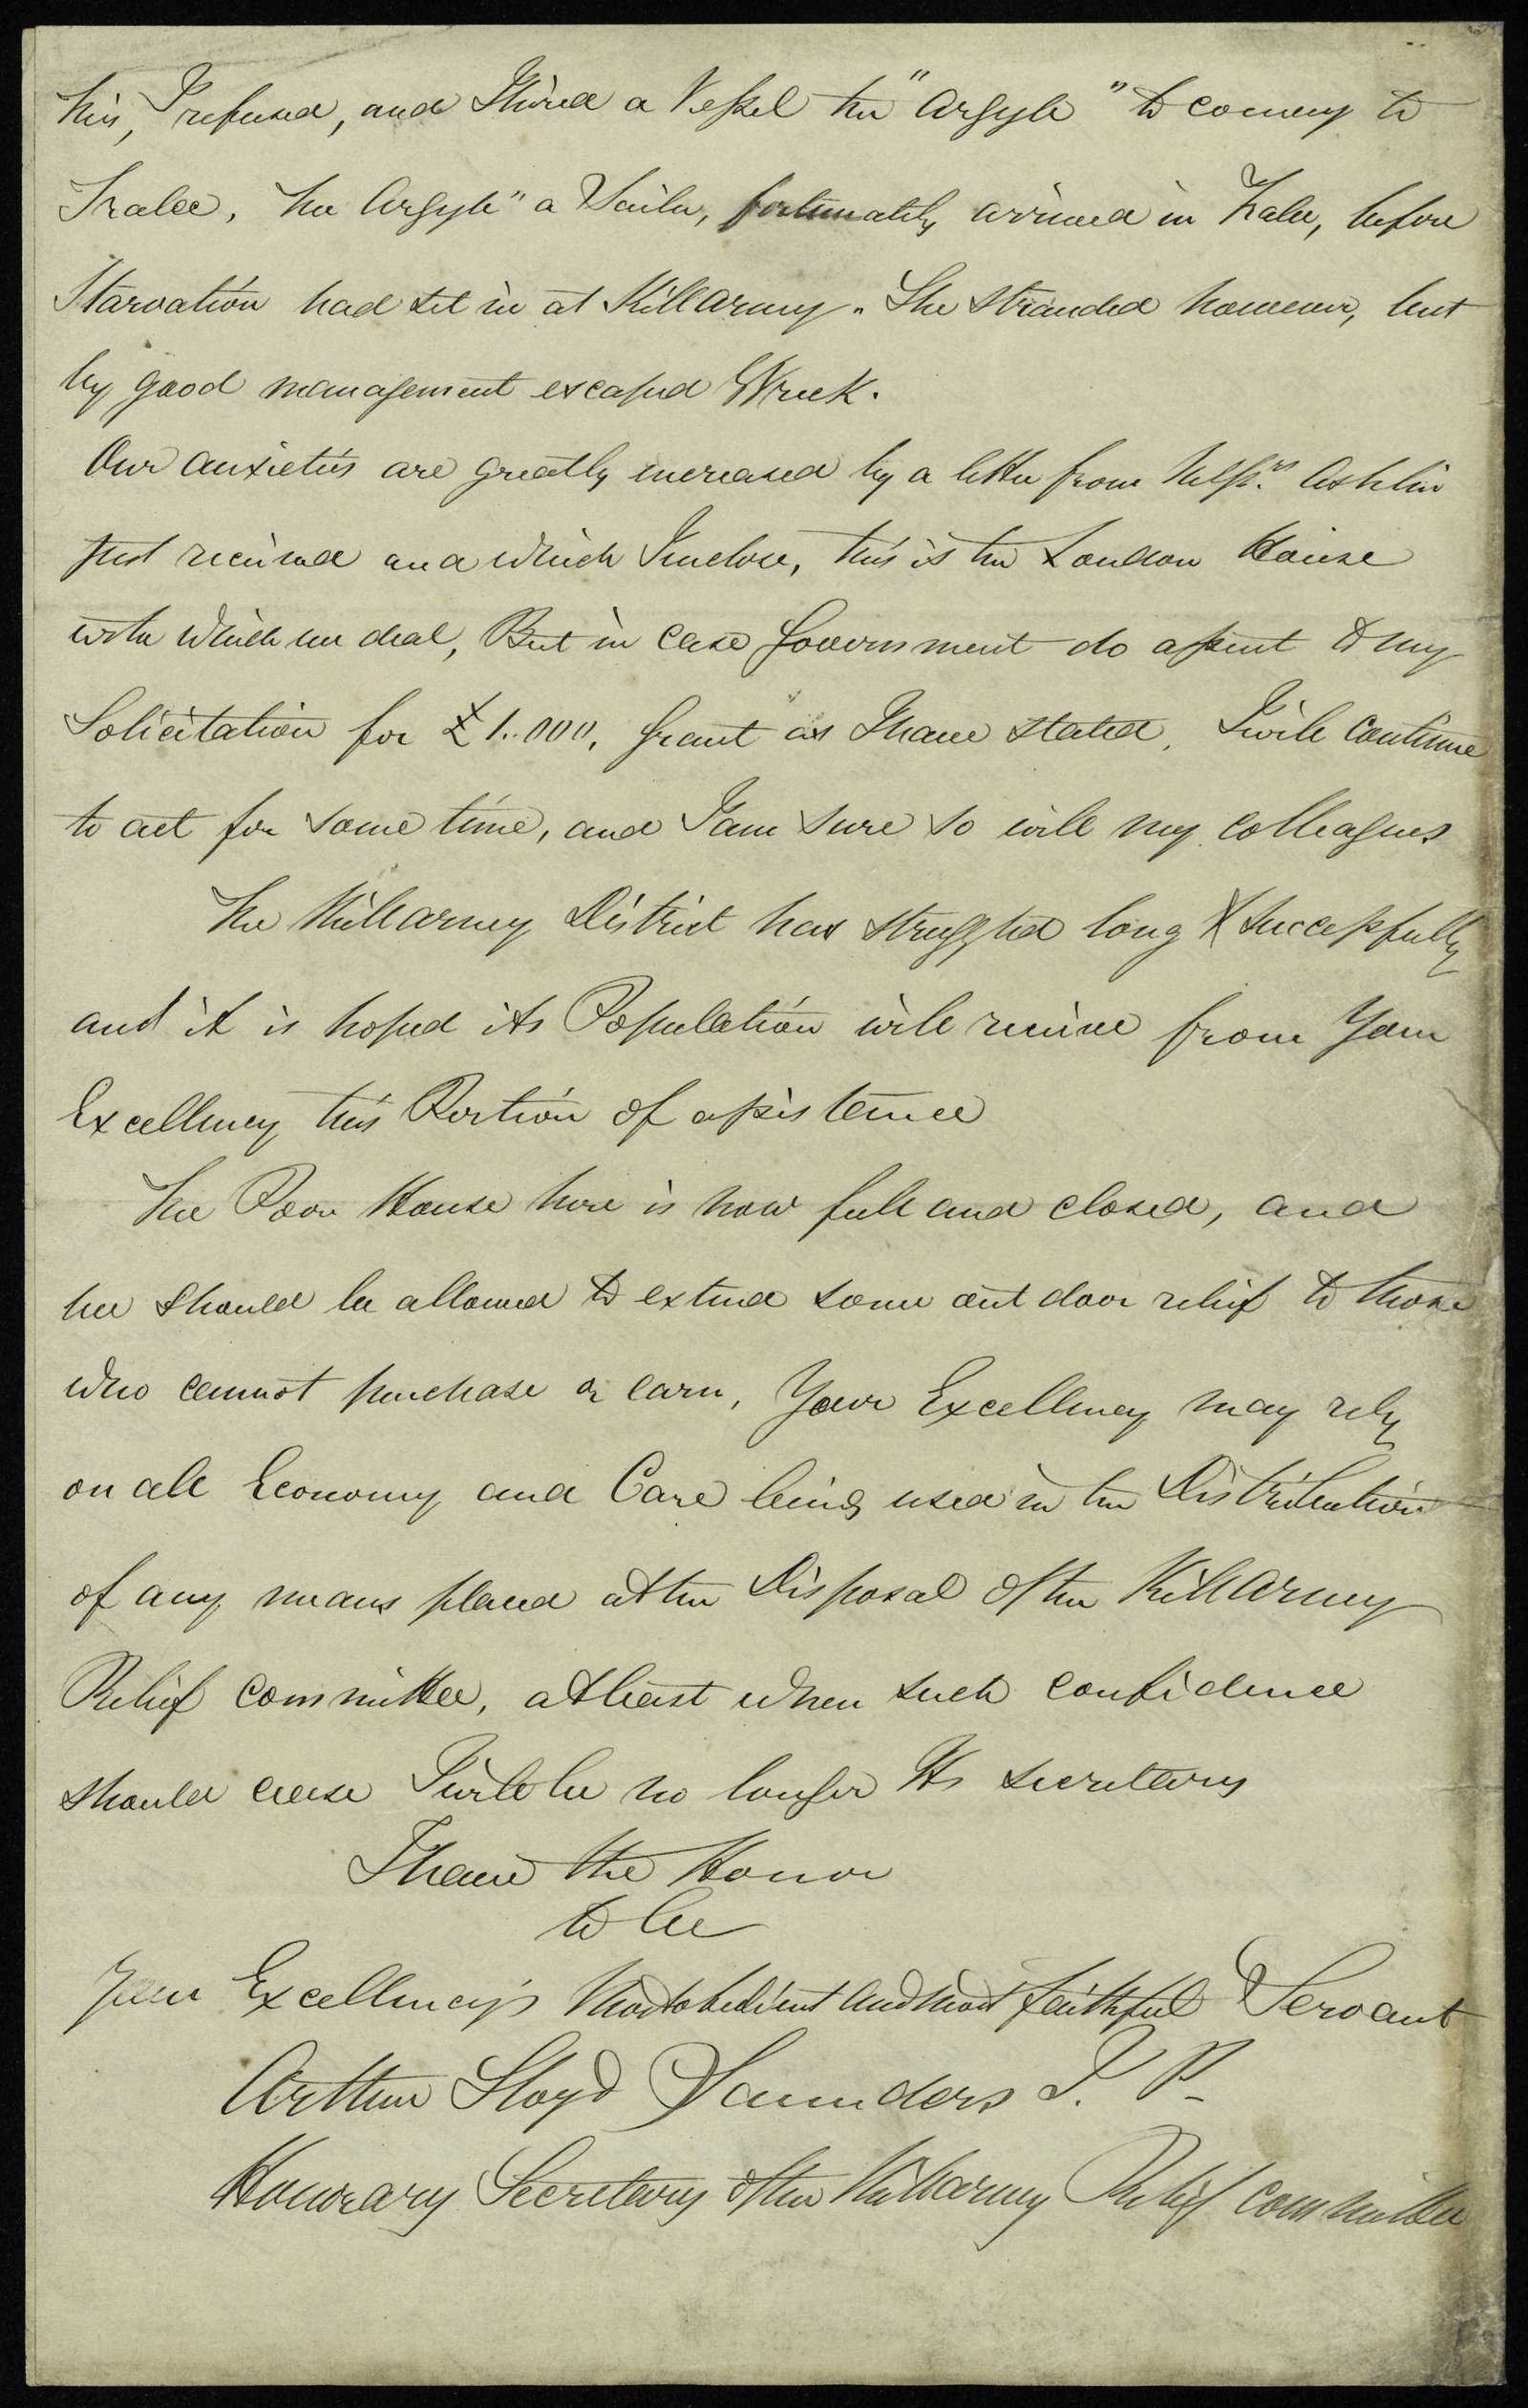 this, I refused, and Hired a Vessel the "Argyle" to convey to
Tralee, the Argyle" a Sailer, fortunately arrived in Tralee, before
Starvation had set in at Killarney. She stranded however, but
by good management escaped Wreck.
Our anxieties are greatly increased by a letter from Mess.rs Ashlin
just received and which I inclose, this is the London House
with which we deal, But in case Government do assent to my
Solicitation for £1.000, Grant as I have stated, I will continue
to act for some time, and I am sure so will my colleagues
The Killarney District has struggled long & successfully
and it is hoped its Population will receive from Your
Excellency this Portion of assistance
The Poor House here is now full and closed, and
we should be allowed to extend some out door relief to those
who cannot purchase or earn, Your Excellency may rely
on all Economy and Care being used in the Distribution
of any means placed at the Disposal of the Killarney
Relief committee, at least when such confidence
should cease I will be no longer Its secretary
I have the Honor
to be
Your Excellency's Most obedient and most faithful Servant
Arthur Lloyd Saunders J. P.
Honorary Secretary of the Killarney Relief committee